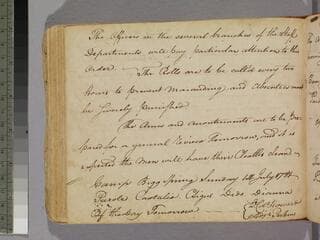 The Officers in the several branches of the Staff
Departments will pay particular attention to this
Order —
The Rolls are to be call'd every two
hours to prevent Marauding and Absentees must
be severely punished
The Arms and Accoutrements are to be Pre
pared for a general Review Tomorrow, and it is
expected the Men will have their Cloaths clean'd
Camp Bigg Spring Sunday July
Parole Countersign Dido Dianna
Of the Day Tomorrow